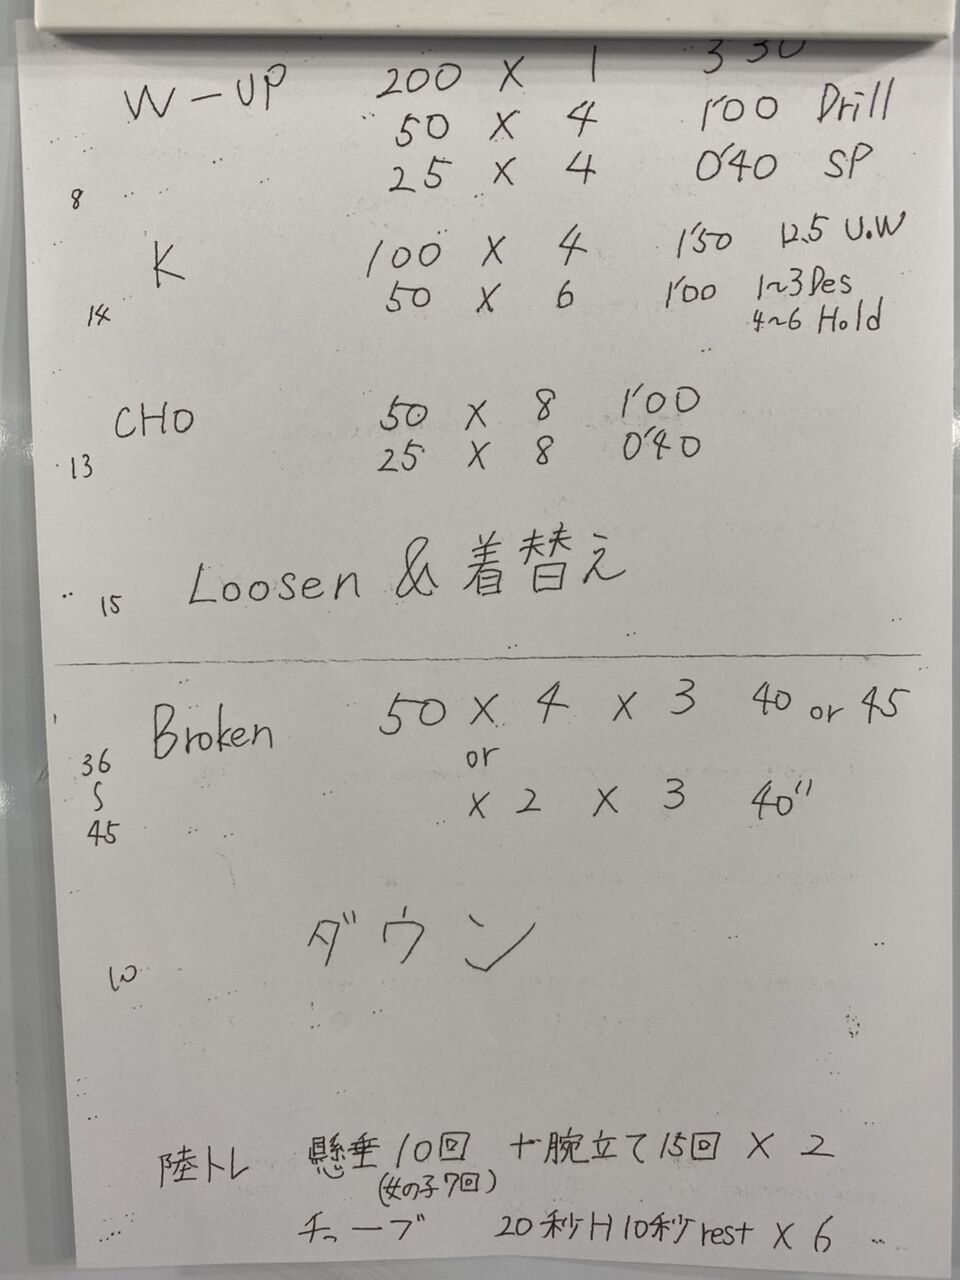 W-UP 200 × 1 3'30
50 × 4 1'00 Drill
25 × 4 0'40 SP
8
K 100 × 4 1'50 12.5 U.W
50 × 6 1'00 1~3 Des
4~6 Hold
14
CHO 50 × 8 1'00
25 × 8 0'40
13
Loosen & 着替え
15
Broken 50 × 4 × 3 40 or 45
or
× 2 × 3 40"
36
S
45
ダウン
10
陸トレ 懸垂 10回 + 腕立て 15回 × 2
(女の子7回)
チューブ 20秒H10秒rest × 6